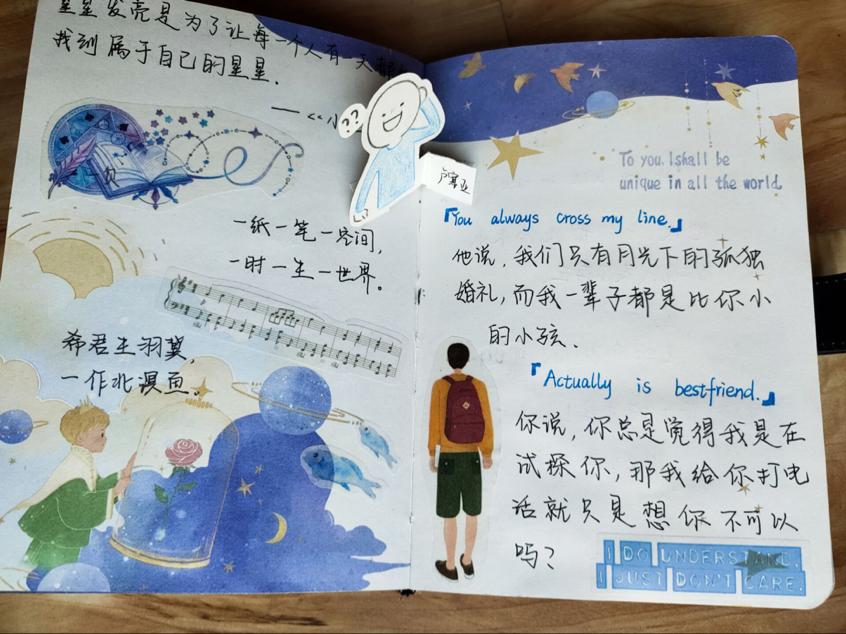 星星发亮是为了让每一个人有一天都
找到属于自己的星星.
——《小
??
一纸一笔一空间,
一时一生一世界。
希君生羽翼,
一作北溟鱼。
To you, I shall be
unique in all the world
『You always cross my line.』
他说,我们只有月光下的孤独
婚礼,而我一辈子都是比你小
的小孩.
『Actually is bestfriend.』
你说,你总是觉得我是在
试探你,那我给你打电
话就只是想你不可以
吗?
I DO UNDERSTAND.
I JUST DON'T CARE.